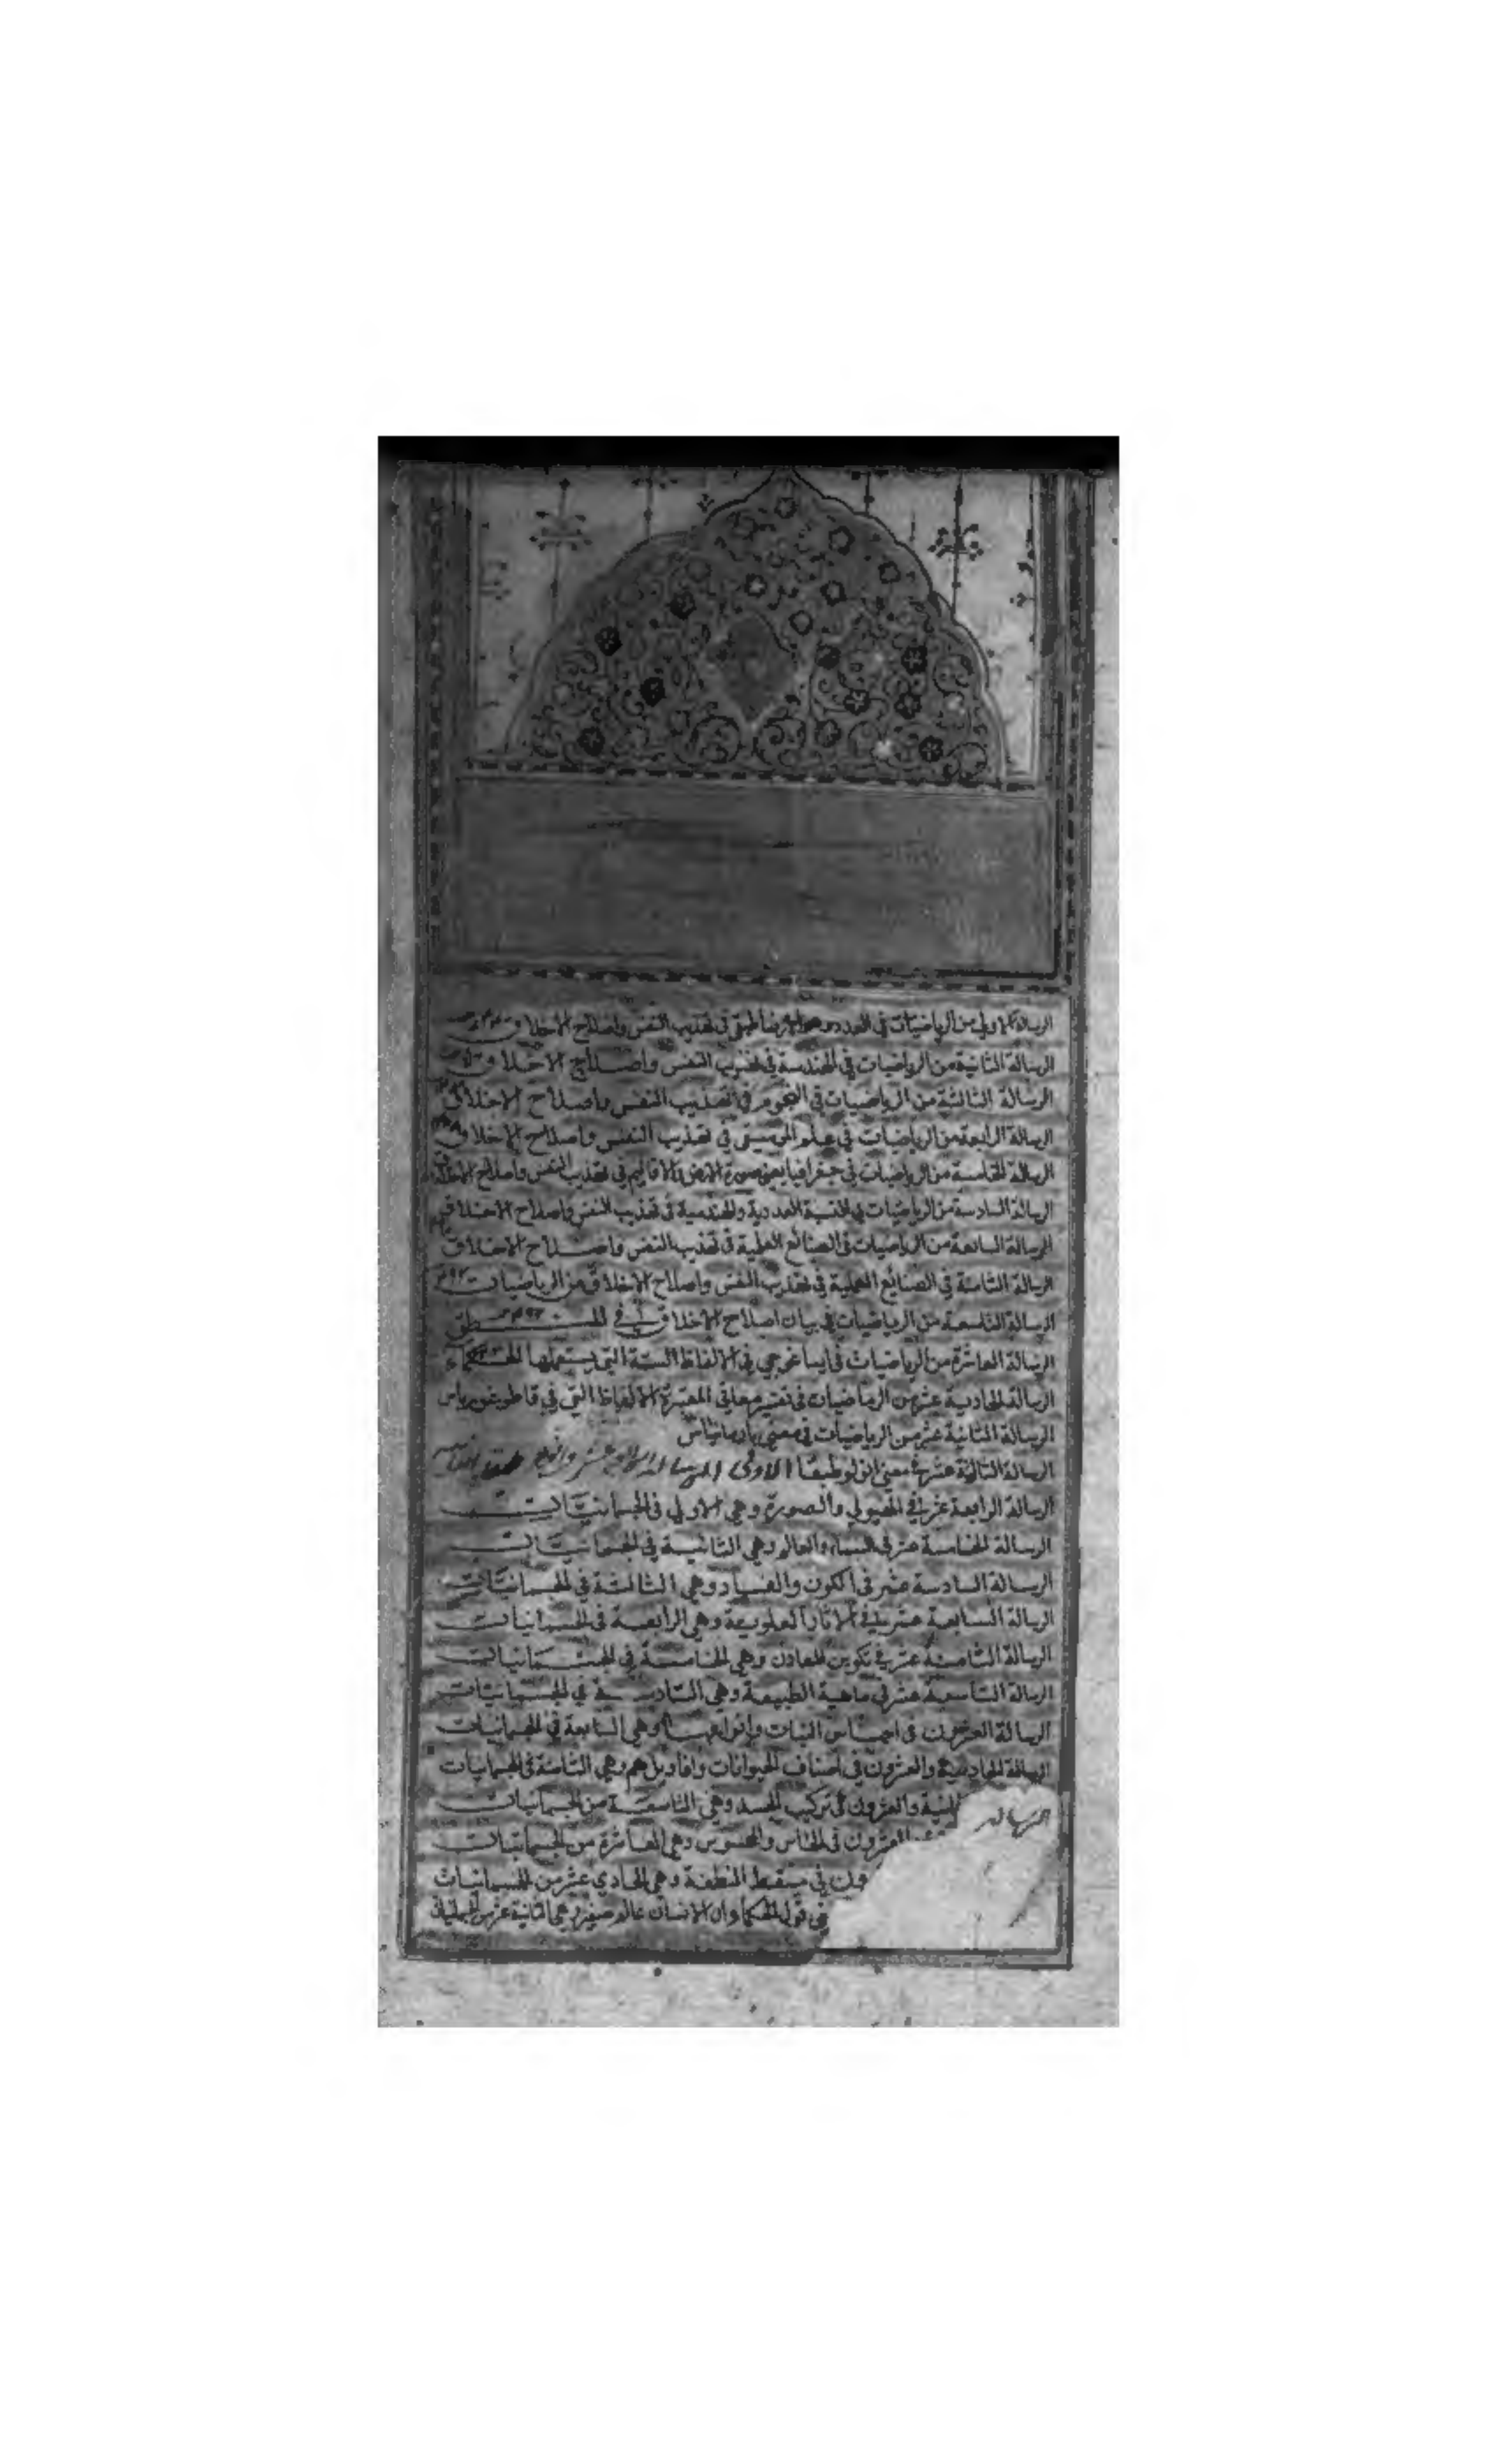 الرسالة الاولي من الرياضيات في العدد وهو الارثماطيقي في تهذيب النفس واصلاح الاخلاق
الرسالة الثانية من الرياضيات في الهندسة في تهذيب النفس واصلاح الاخلاق
الرسالة الثالثة من الرياضيات في النجوم في تهذيب النفس واصلاح الاخلاق
الرسالة الرابعة من الرياضيات في علم الموسيقي في تهذيب النفس واصلاح الاخلاق
الرسالة الخامسة من الرياضيات في جغرافيا يعني صورة الارض والاقاليم في تهذيب النفس واصلاح الاخلاق
الرسالة السادسة من الرياضيات في النسبة العددية والهندسية في تهذيب النفس واصلاح الاخلاق
الرسالة السابعة من الرياضيات في الصنائع العلمية في تهذيب النفس واصلاح الاخلاق
الرسالة الثامنة في الصنايع العملية في تهذيب النفس واصلاح الاخلاق من الرياضيات
الرسالة التاسعة من الرياضيات في بيان اصلاح الاخلاق في المنطق
الرسالة العاشرة من الرياضيات في ايساغوجي في الالفاظ الستة التي يستعملها الحكماء
الرسالة الحادية عشر من الرياضيات في تفسير معاني الالفاظ التي في قاطوغورياس
الرسالة الثانية عشر من الرياضيات في معني بارمانياس
الرسالة الثالثة عشر في معني انولوطيقا الاولى الرسالة
الرسالة الرابعة عشر في الهيولي والصورة وهي الاولي في الجسمانيات
الرسالة الخامسة عشر في السماء والعالم وهي الثانية في الجسمانيات
الرسالة السادسة عشر في الكون والفساد وهي الثالثة في الجسمانيات
الرسالة السابعة عشر في الاثار العلوية وهي الرابعة في الجسمانيات
الرسالة الثامنة عشر في تكوين المعادن وهي الخامسة في الجسمانيات
الرسالة التاسعة عشر في ماهية الطبيعة وهي السادسة في الجسمانيات
الرسالة العشرون في اجناس النبات وانواعها وهي السابعة في الجسمانيات
الرسالة الحادية والعشرون في اصناف الحيوانات واقاويلهم وهي الثامنة في الجسمانيات
الرسالة والعشرون في تركيب الجسد وهي التاسعة من الجسمانيات
العشرون في الحاس والمحسوس وهي العاشرة من الجسمانيات
في مسقط النطفة وهي الحادي عشر من الجسمانيات
في قول الحكماء ان الانسان عالم صغير وهي الثانية عشر من